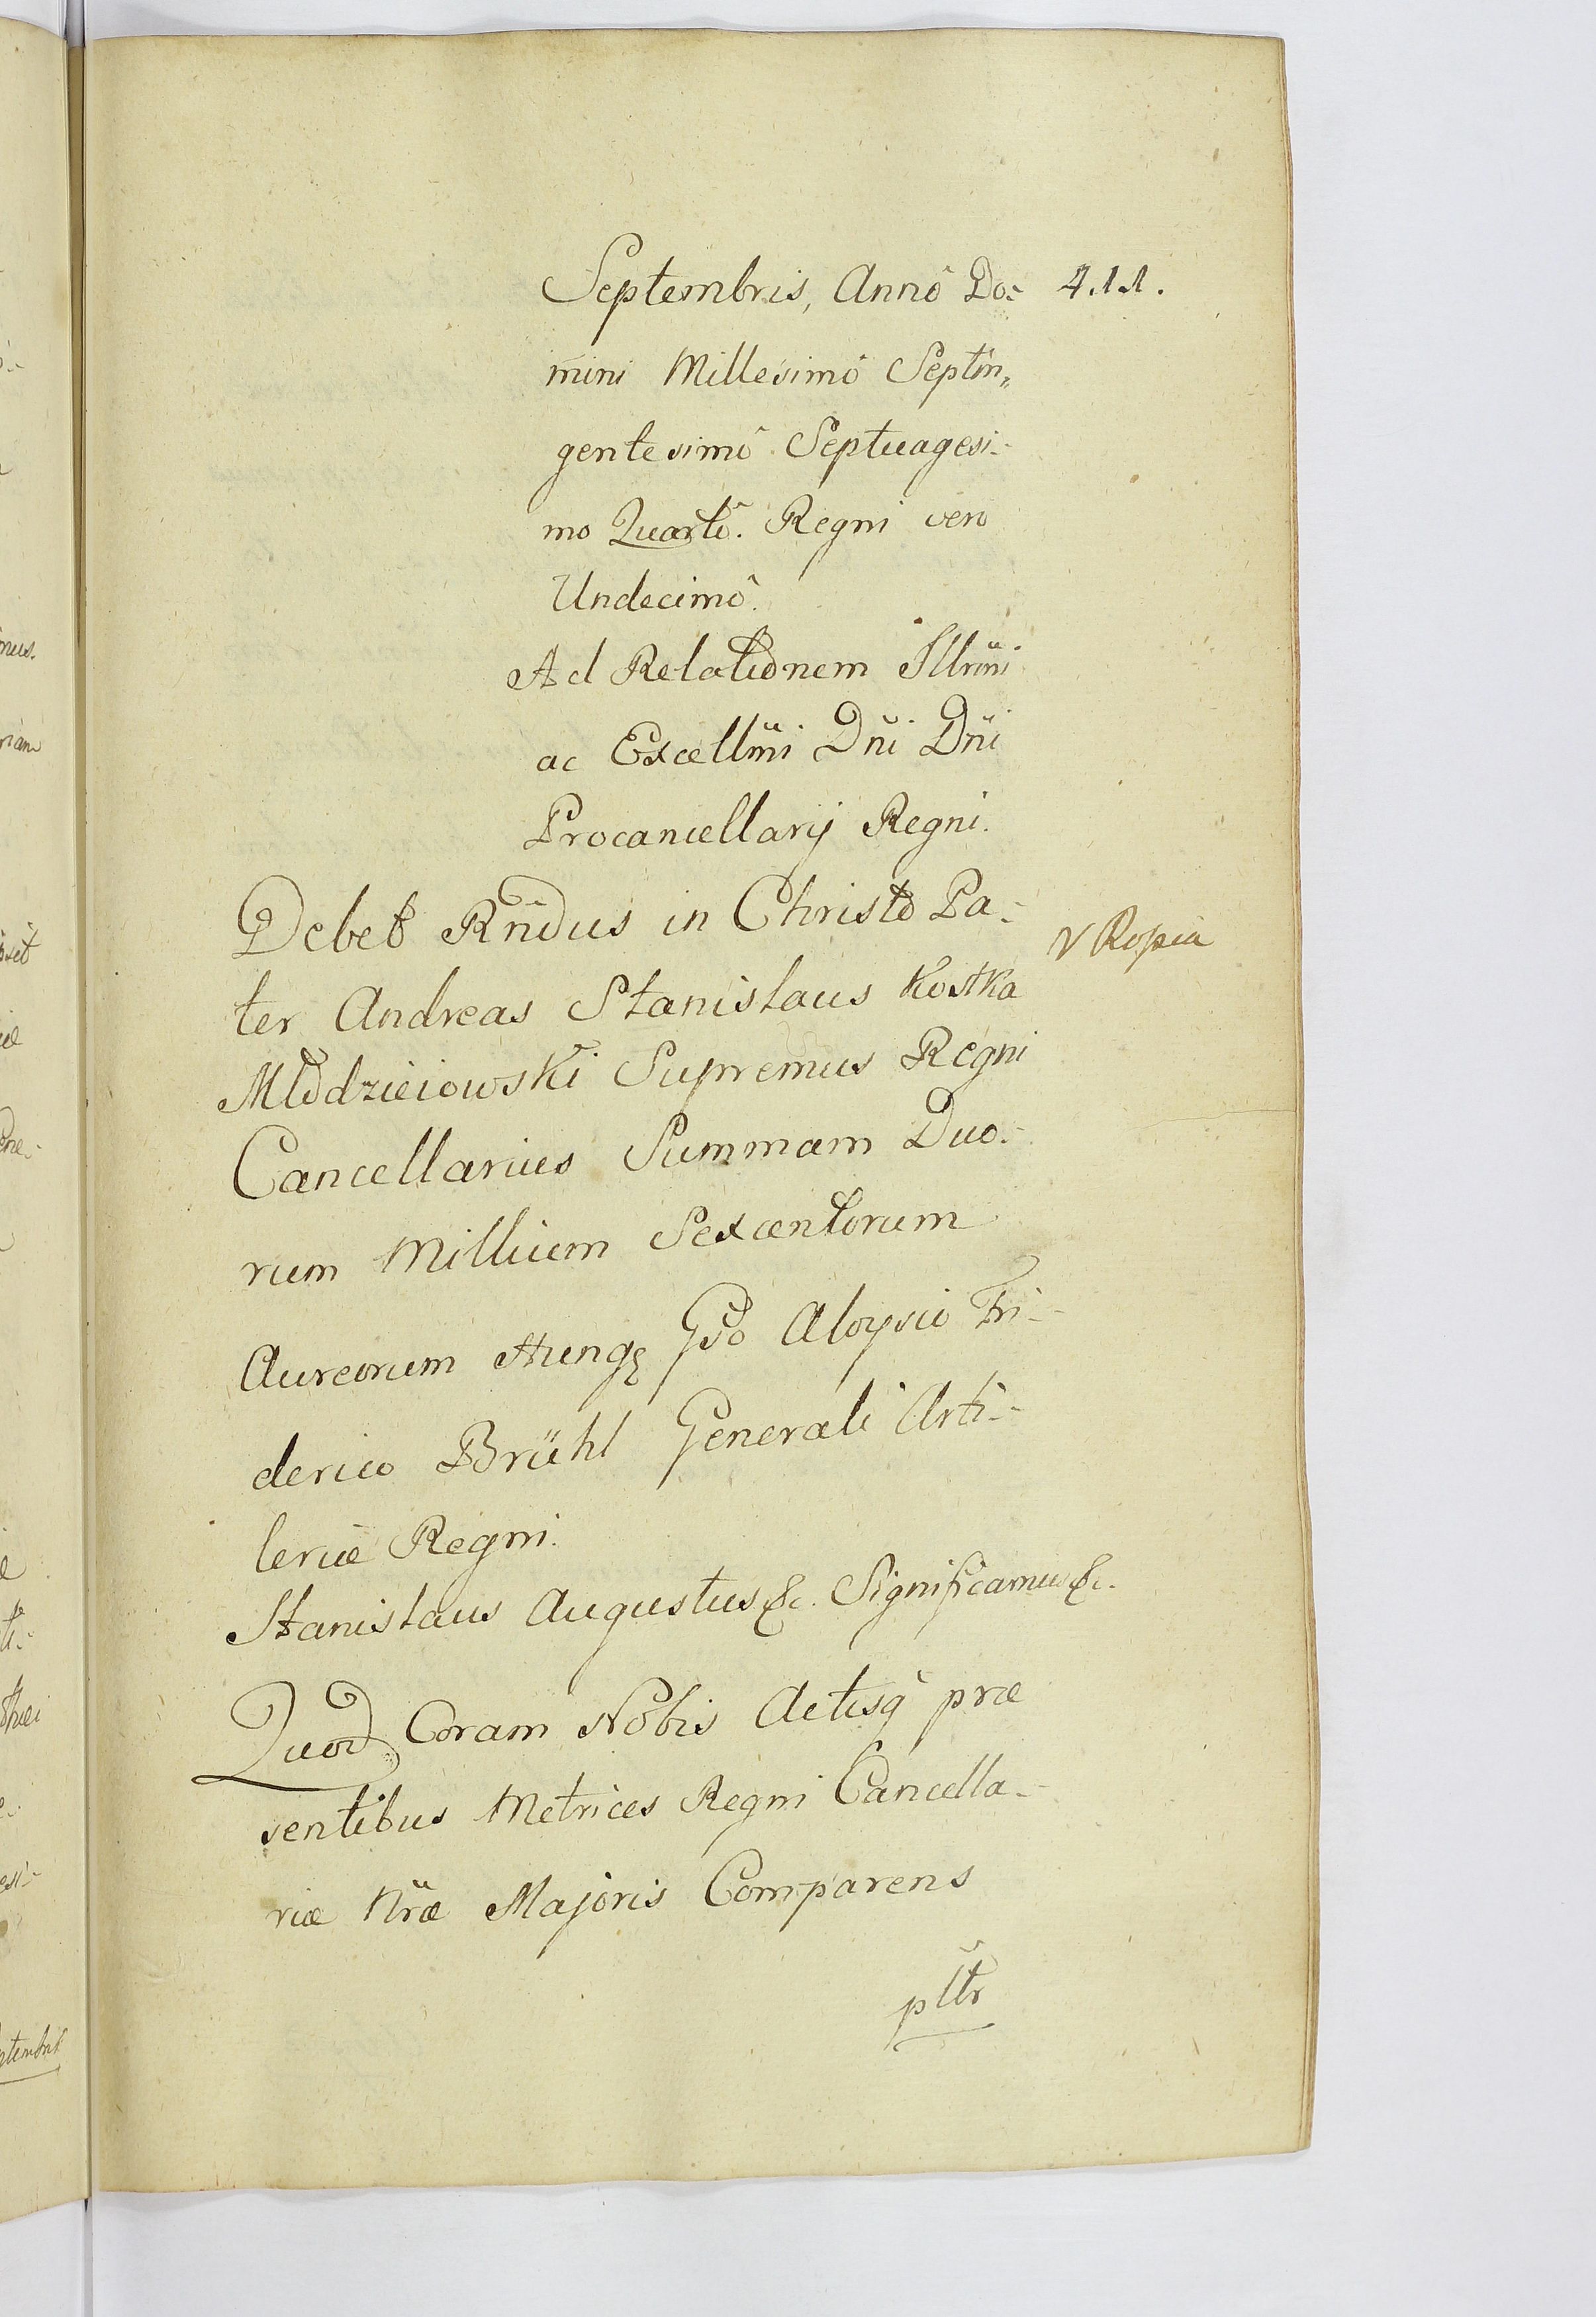 411.
Septembris, Annô Do-
mini Millesimô Septin„
gentesimô Septuagesi-
mo Quartô. Regni vero
Undecimô.
Ad Relationem Illrm̃i
ac Excellm̃i Dñi Dñi
Procancellarij Regni.
Debet Rñdus in Christo Pa-
V Kopia
ter Andreas Stanislaus Kostka
Młodzieiowski Supremus Regni
Cancellarius Summam Duo-
rum Millium Sexcentorum
Aureorum Hung. Gso Aloysio Fri-
derico Brühl Generali Arti-
leriæ Regni.
Stanislaus Augustus &c. Significamus &c.
Quod Coram Nobis Actisq̃ præ
sentibus Metrices Regni Cancella-
riæ Nr̃æ Majoris Comparens
pltr̃